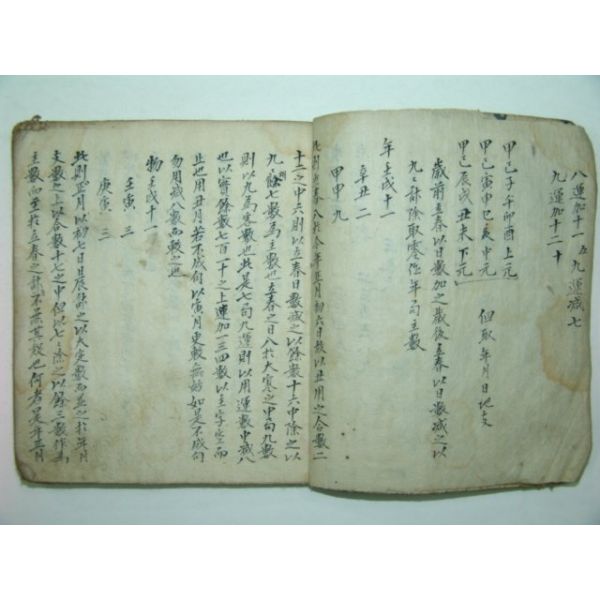 八運加十一五 九運減七
九運加十二十
甲己子午卯酉上元
甲己寅申巳亥中元 但取年月日地支
甲己辰戌丑未下元
歲前立春以日數加之歲後立春以日數減之以
九之計除取零作年局主數
年壬戌十一
辛丑二
甲申九
此則立春八於今年正月初六日故以丑用之合數二
十二之中六則以立春日數減之以餘數十六中除之以
九餘七數為主數也立春之日八於大寒之中局九數
則以九為定數也此是七局九運則以用運數中減八
也以實餘數七百一十之上連加一三四數以主字空而
止也用丑月若不成句以寅月更數無妨如是不成句
勿用減八數而數之也
物壬戌十一
壬寅 三
庚寅 三
此則正月以初七日日辰計之以大定數而並之於年月
支數之上以合數十七之中但以七除之以餘三數作為
主數而至於立春之計不無其數也何者是年正月